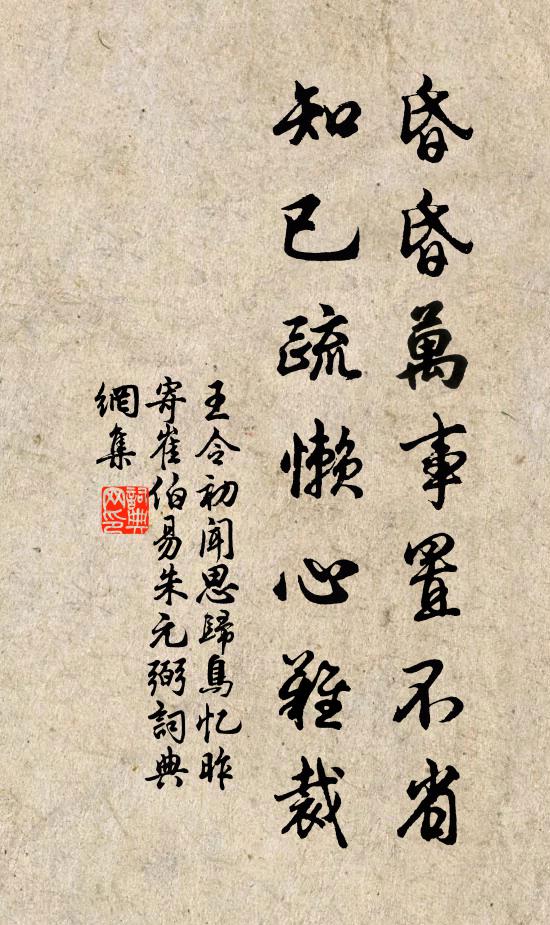 昏昏萬事置不省
知已疏懶心難裁
王令初聞思歸鳥忆昨
寄崔伯易朱元弼詞典
網集
詞典
网印